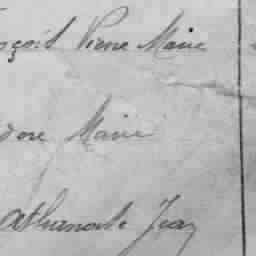 nçois Pierre Marie
dore Marie
athanase Jean